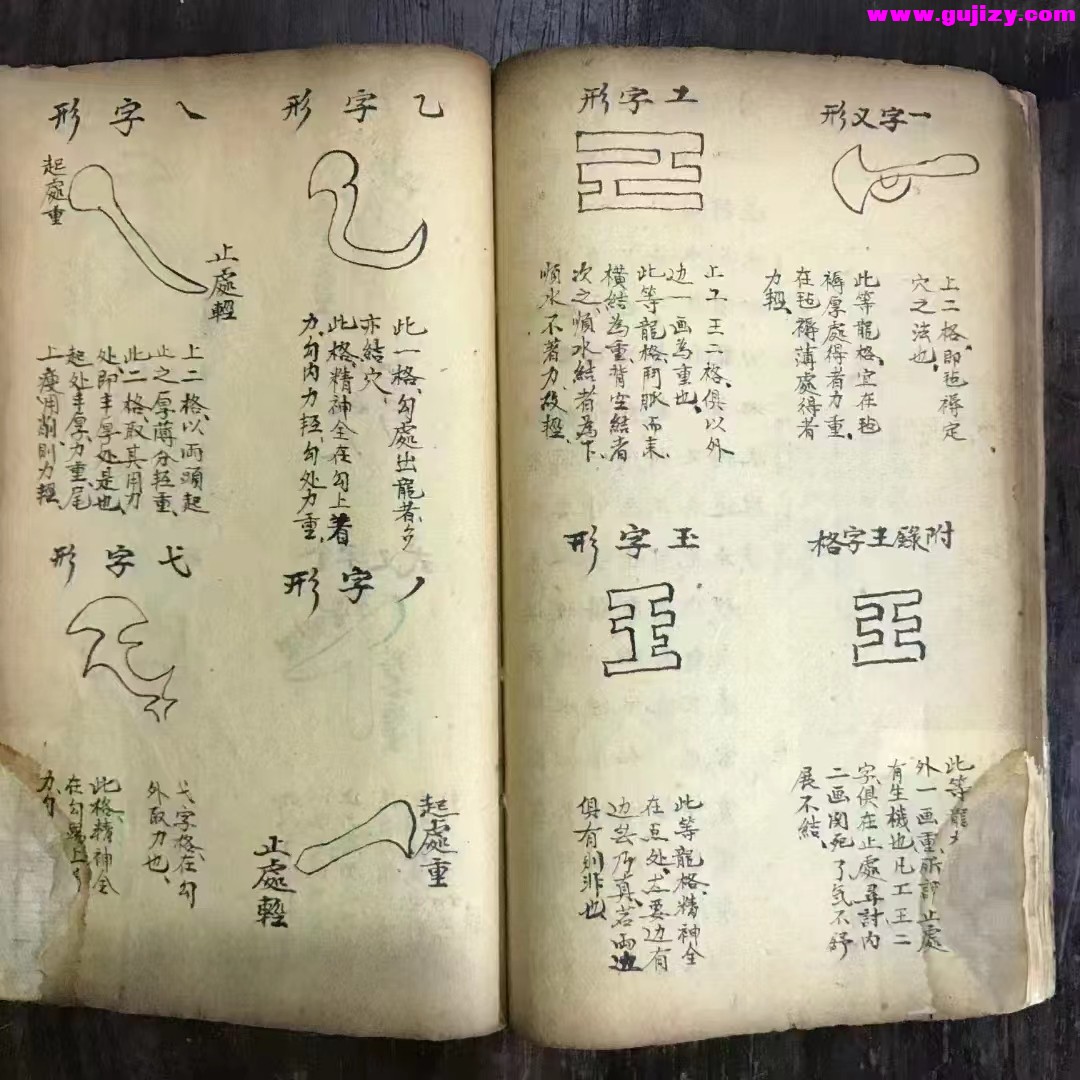 www.gujizy.com
一字又形
上二格、即毡褥定
穴之法也、
此等龍格、宜在毡
褥厚處得者力重、
在毡褥薄處得者
力輕、
土字形
上工、王二格、俱以外
边一画為重也、
此等龍格、鬥脈而来、
横結為重、背空結者
次之、順水結者為下、
順水不著力、故輕、
附錄王字格
此等龍
外一画重、所謂止處
有生機也、凡工王二
字、俱在止處尋討、内
二画閃死了、气不舒
展不結、
玉字形
此等龍格、精神全
在点处、要边有
边無乃真、若両边
俱有則非也、
乙字形
此一格、勾處出龍者、
亦結穴、
此格、精神全在勾上着
力、勾内力轻、勾处力重、
乀字形
起處重
止處輕
上二格、以両頭起
止之厚薄分轻重、
此二格取其用力
处、即丰厚处是也、
起处丰厚、力重、尾
上瘦用削、則力輕、
丿字形
起處重
止處輕
弋字形
弋字格、在勾
外取力也、
此格、精神全
在勾上
力、勾